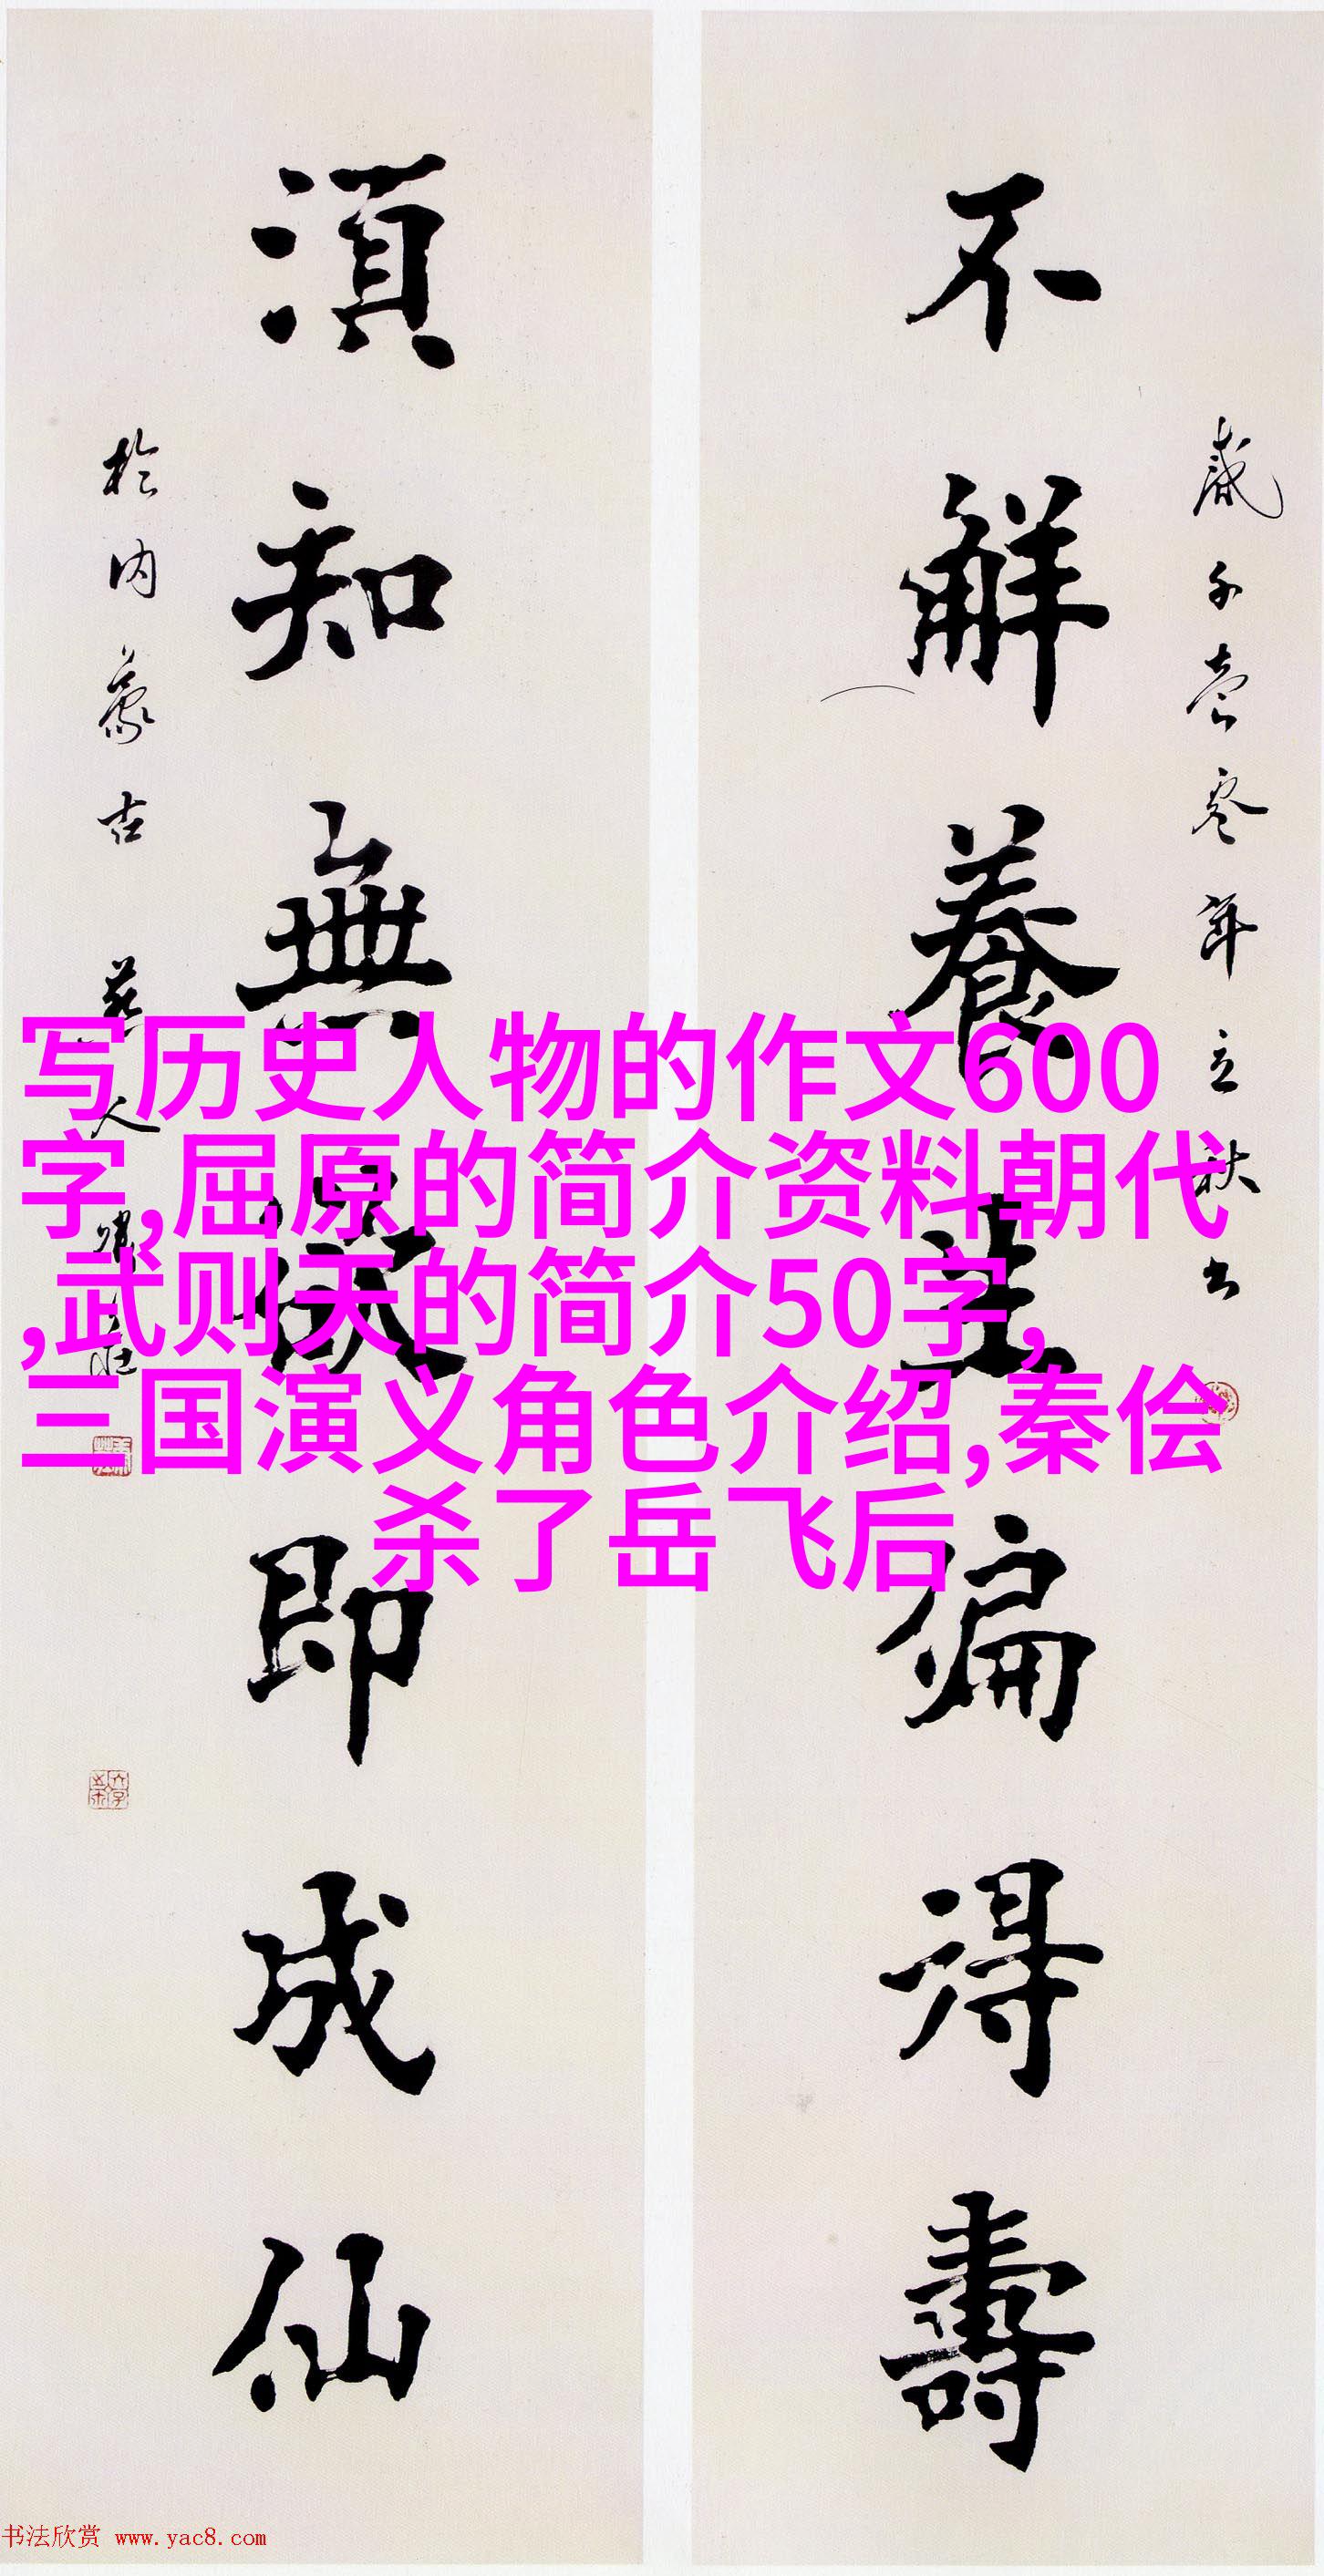 不解養生偏得壽
年立秋
須知無即成仙
於内蒙古
写历史人物的作文600
字,屈原的简介资料朝代
,武则天的简介50字,
三国演义角色介绍,秦侩
杀了岳飞后
书法欣赏 www.yac8.com